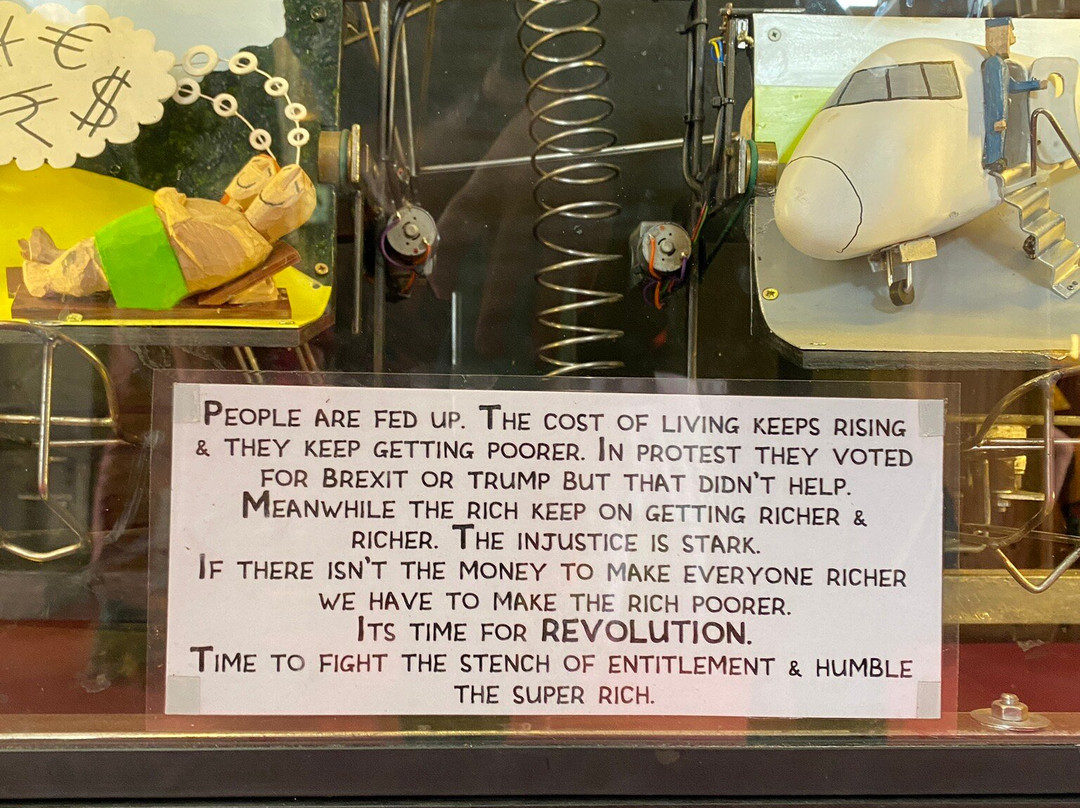 €
$
PEOPLE ARE FED UP. THE COST OF LIVING KEEPS RISING
& THEY KEEP GETTING POORER. IN PROTEST THEY VOTED
FOR BREXIT OR TRUMP BUT THAT DIDN'T HELP.
MEANWHILE THE RICH KEEP ON GETTING RICHER &
RICHER. THE INJUSTICE IS STARK.
IF THERE ISN'T THE MONEY TO MAKE EVERYONE RICHER
WE HAVE TO MAKE THE RICH POORER.
ITS TIME FOR REVOLUTION.
TIME TO FIGHT THE STENCH OF ENTITLEMENT & HUMBLE
THE SUPER RICH.